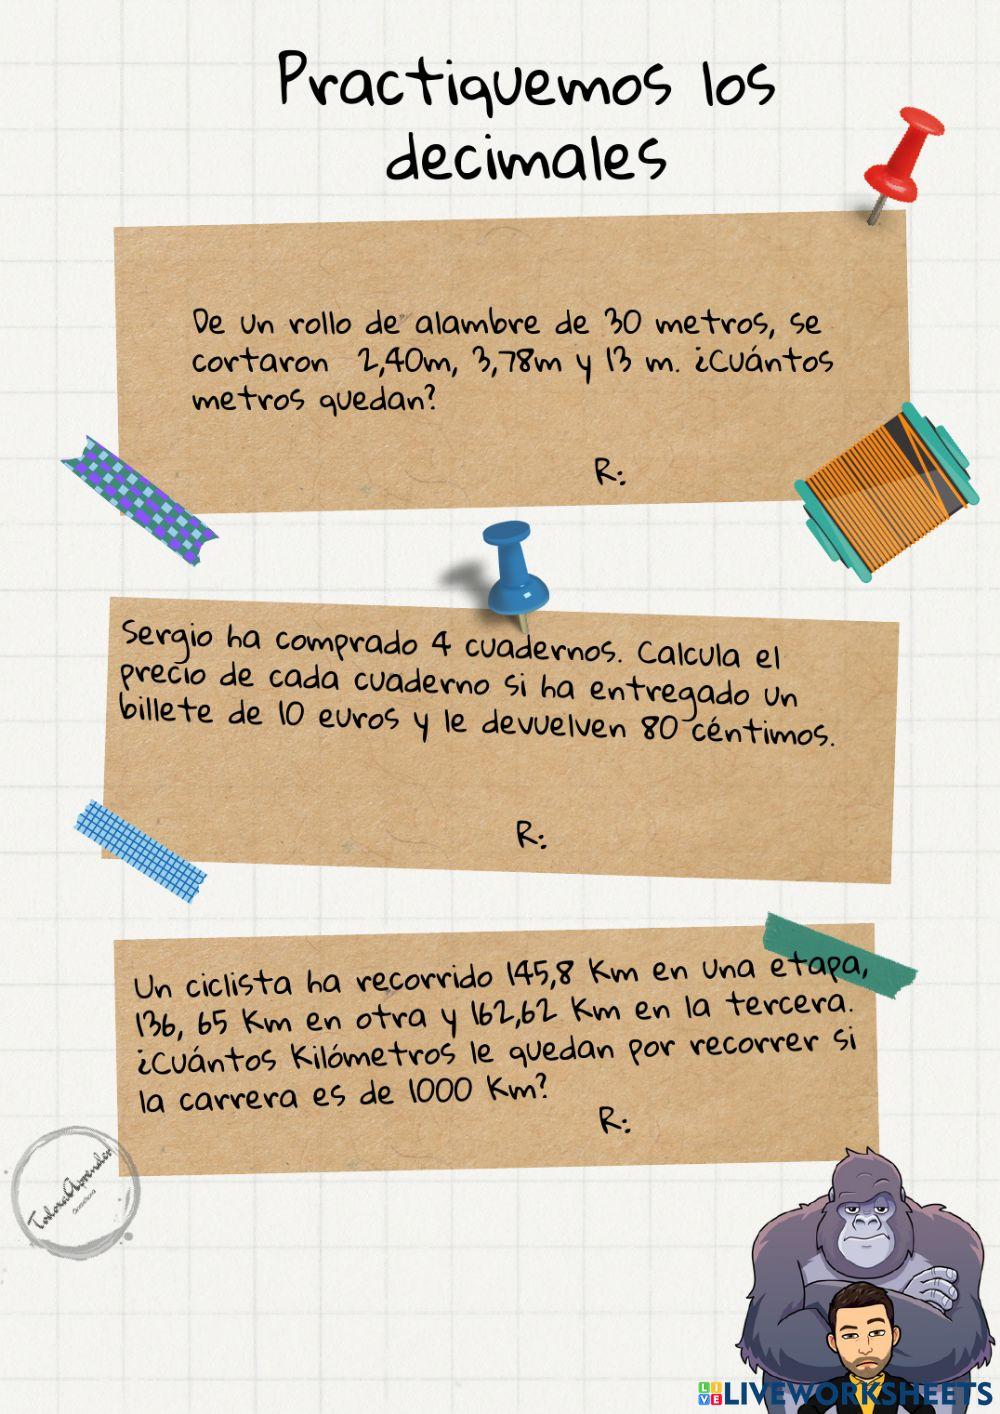 Practiquemos los
decimales
De un rollo de alambre de 30 metros, se
cortaron 2,40m, 3,78m y 13 m. ¿Cuántos
metros quedan?
R:
Sergio ha comprado 4 cuadernos. Calcula el
precio de cada cuaderno si ha entregado un
billete de 10 euros y le devuelven 80 céntimos.
R:
Un ciclista ha recorrido 145,8 Km en una etapa,
136, 65 Km en otra y 162,62 Km en la tercera.
¿Cuántos Kilómetros le quedan por recorrer si
la carrera es de 1000 Km?
R:
LIVEWORKSHEETS